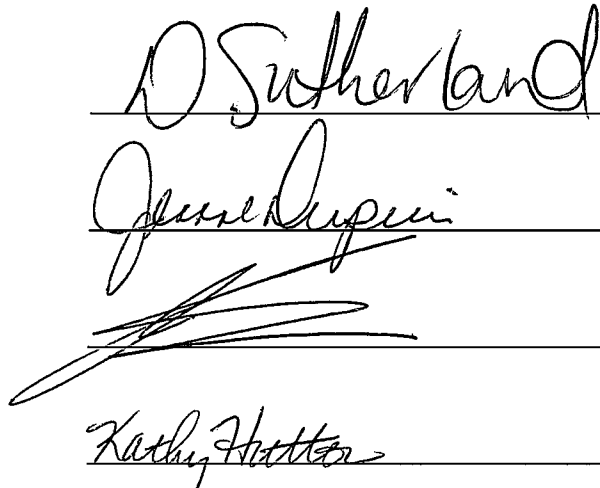 D Sutherland
Jeanne Dupuis
Kathy Hutton